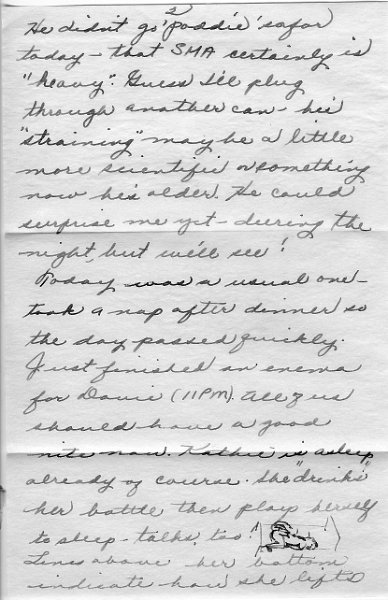 2
He didn't go 'poddie' so far
today - that SMA certainly is
"heavy". Guess I'll plug
through another can - his
"straining" may be a little
more scientific or something
now he's older. He could
surprise me yet - during the
night, but we'll see!
Today was a usual one -
took a nap after dinner so
the day passed quickly.
Just finished an enema
for Davie (11 PM). All of us
should have a good
nite now. Kathie is asleep
already of course. She "drinks"
her bottle then plays herself
to sleep - talks, too!
Lines above her bottom
indicate how she lifts